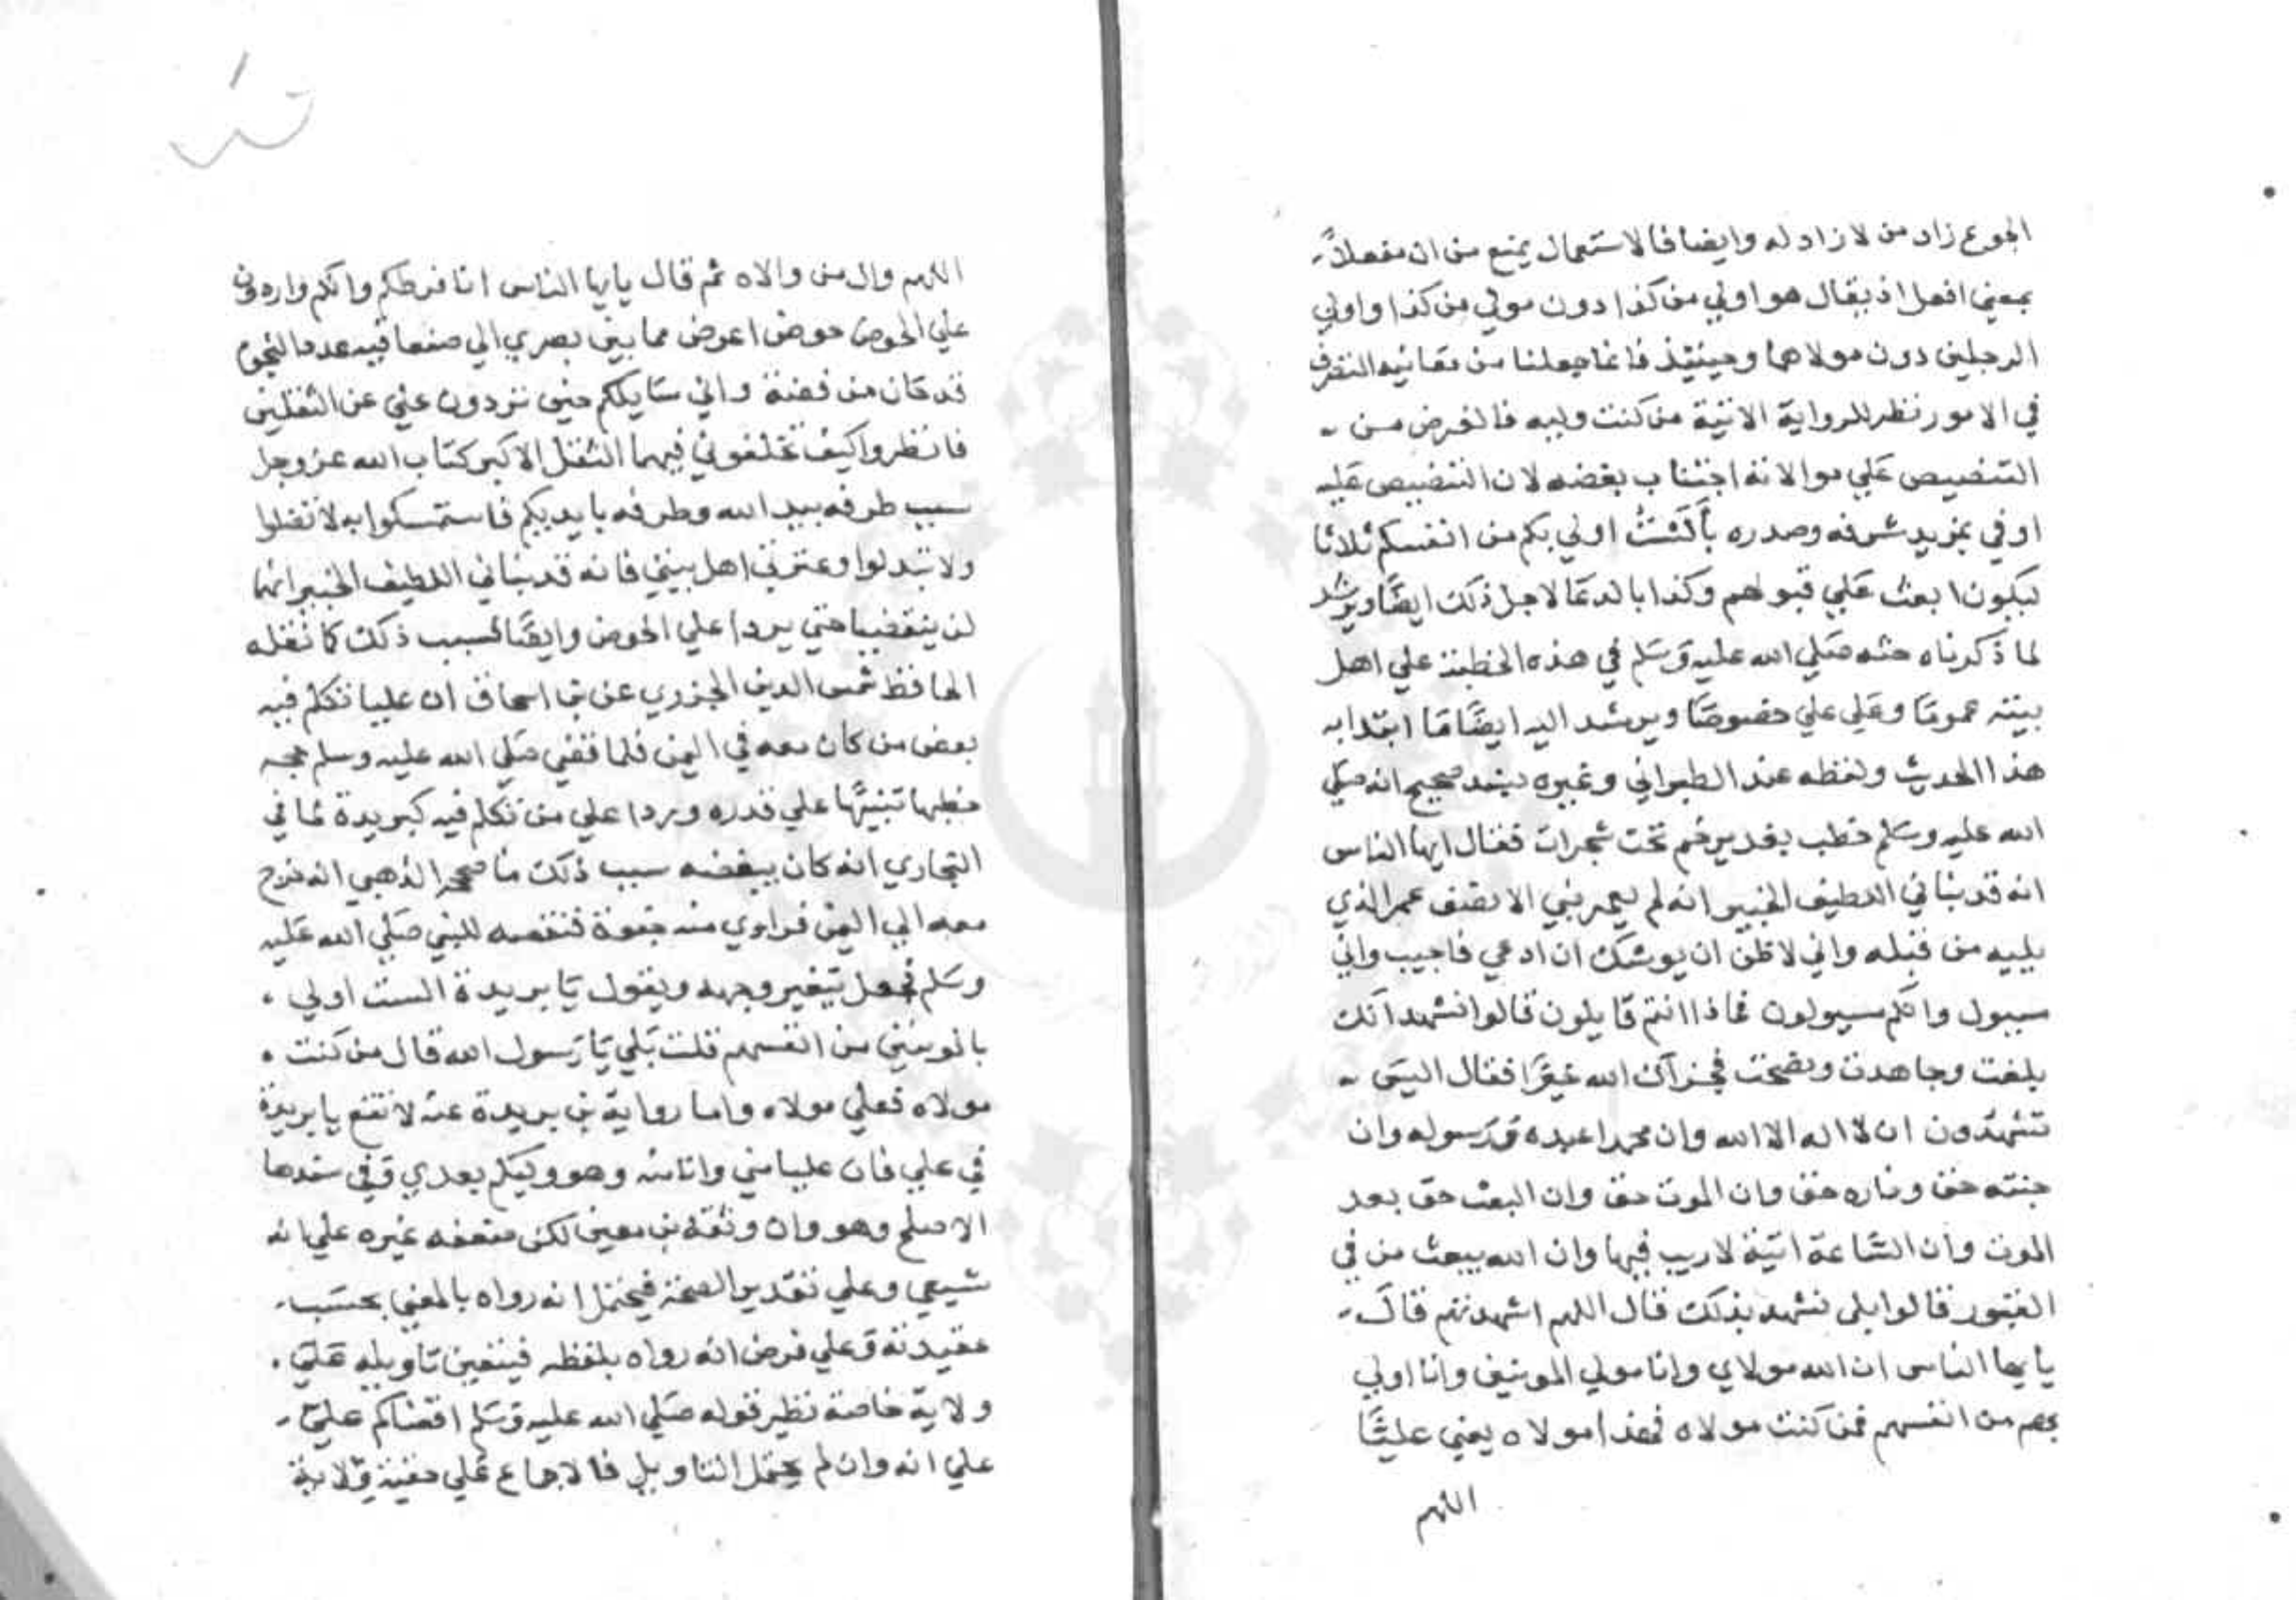 الجوع زاد من لا زاد له وايضا فالاستعمال يمنع من ان مفعلاً
بمعني افعل اذ يقال هو اولي من كذا دون مولي من كذا واولي
الرجلين دون مولاهما وحينئذ فانما جعلنا من معانيه التصرف
في الامور نظر للرواية الاتية من كنت وليه فالغرض من
التنصيص علي موالاته اجتناب بغضه لان التنصيص عليه
اوفي بمزيد شرفه وصدره بألَسْتُ اولي بكم من انفسكم ثلاثا
ليكون ابعث علي قبولهم وكذا بالدعا لاجل ذلك ايضًا ويرشد
لما ذكرناه حثه صَلي الله عليه وَسَلم في هذه الخطبة علي اهل
بيته عمومًا وعَلي علي خصوصًا ويرشد اليه ايضًا مَا ابتدا به
هذا الحديث ولفظه عند الطبراني وغيره بسند صحيح انه صَلي
الله عليه وسَلم خطب بغدير خم تحت شجرات فقال ايها الناس
انه قد نباني اللطيف الخبير انه لم يعمر نبي الا نصف عمر الذي
يليه من قبله واني لاظن ان يوشك ان ادعي فاجيب واني
مسيول وانكم مسيولون فماذا انتم قايلون قالوا نشهد انك
بلغت وجاهدت ونصحت فجزاك الله خيرًا فقال اليس
تشهدون ان لا اله الا الله وان محمدا عبده وَرَسوله وان
جنته حق وناره حق وان الموت حق وان البعث حق بعد
الموت وان السَّاعة اتية لا ريب فيها وان الله يبعث من في
القبور قالوا بلى نشهد بذلك قال اللهم اشهد ثم قال
يا يها الناس ان الله مولاي وانا مولي المومنين وانا اولي
بهم من انفسهم فمن كنت مولاه فهذا مولاه يعني عليًّا
اللهم
اللهم وال من والاه ثم قال يا يها الناس انا فرطكم وانكم واردون
علي الحوض حوض اعرض مما بين بصري الي صنعا فيه عدد النجوم
قدحان من فضة واني سَايلكم حين تردون علي عن الثقلين
فانظروا كيف تخلفوني فيهما الثقل الاكبر كتاب الله عز وجل
سبب طرفه بيد الله وطرفه بايديكم فاستمسكوا به لا تضلوا
ولا تبدلوا وعترتي اهل بيتي فانه قد نباني اللطيف الخبير انهما
لن ينقضيا حتي يردا علي الحوض وايضًا فسبب ذلك كما نقله
الحافظ شمس الدين الجزري عن بن اسحاق ان عليا تكلم فيه
بعض من كان معه في اليمن فلما قضي صَلي الله عليه وسلم حجه
خطبها تنبيهًا علي قدره وردا علي من تكلم فيه كبريدة لما في
البخاري انه كان يبغضه سبب ذلك مَا صححه الذهبي انه خرج
معه الي اليمن فراوي منه جفوة فنقصه للنبي صَلي الله عَليه
وسَلم فجعل يتغير وجهه ويقول يَا بريدة الست اولي
بالمومنين من انفسهم قلت بَلي يَا رَسول الله قال من كنت
مولاه فعلي مولاه واما رواية بن بريدة عنه لا تقع يا بريدة
في علي فان عليا مني وانا منه وهو وليكم بعدي وَفي سندها
الاصلح وهو وان وثقه بن معين لكن ضعفه غيره علي انه
شيعي وعلي تقدير الصحة فيحتمل انه رواه بالمعني بحسَب
عقيدته وَعلي فرض انه رواه بلفظه فيتعين تَاويله عَلي
ولاية خاصة نظير قوله صَلي الله عليه وَسَلم اقضاكم عليّ
علي انه وان لم يحتمل التاويل فالاجماع عَلي حقية وَلاية